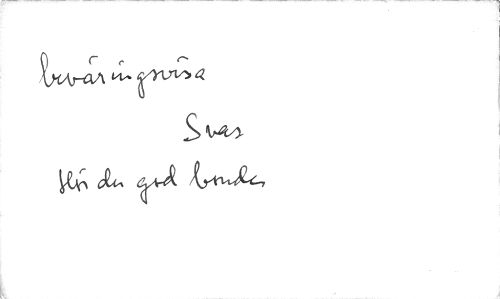 beväringsvisa
Svar
Hör du god bonde